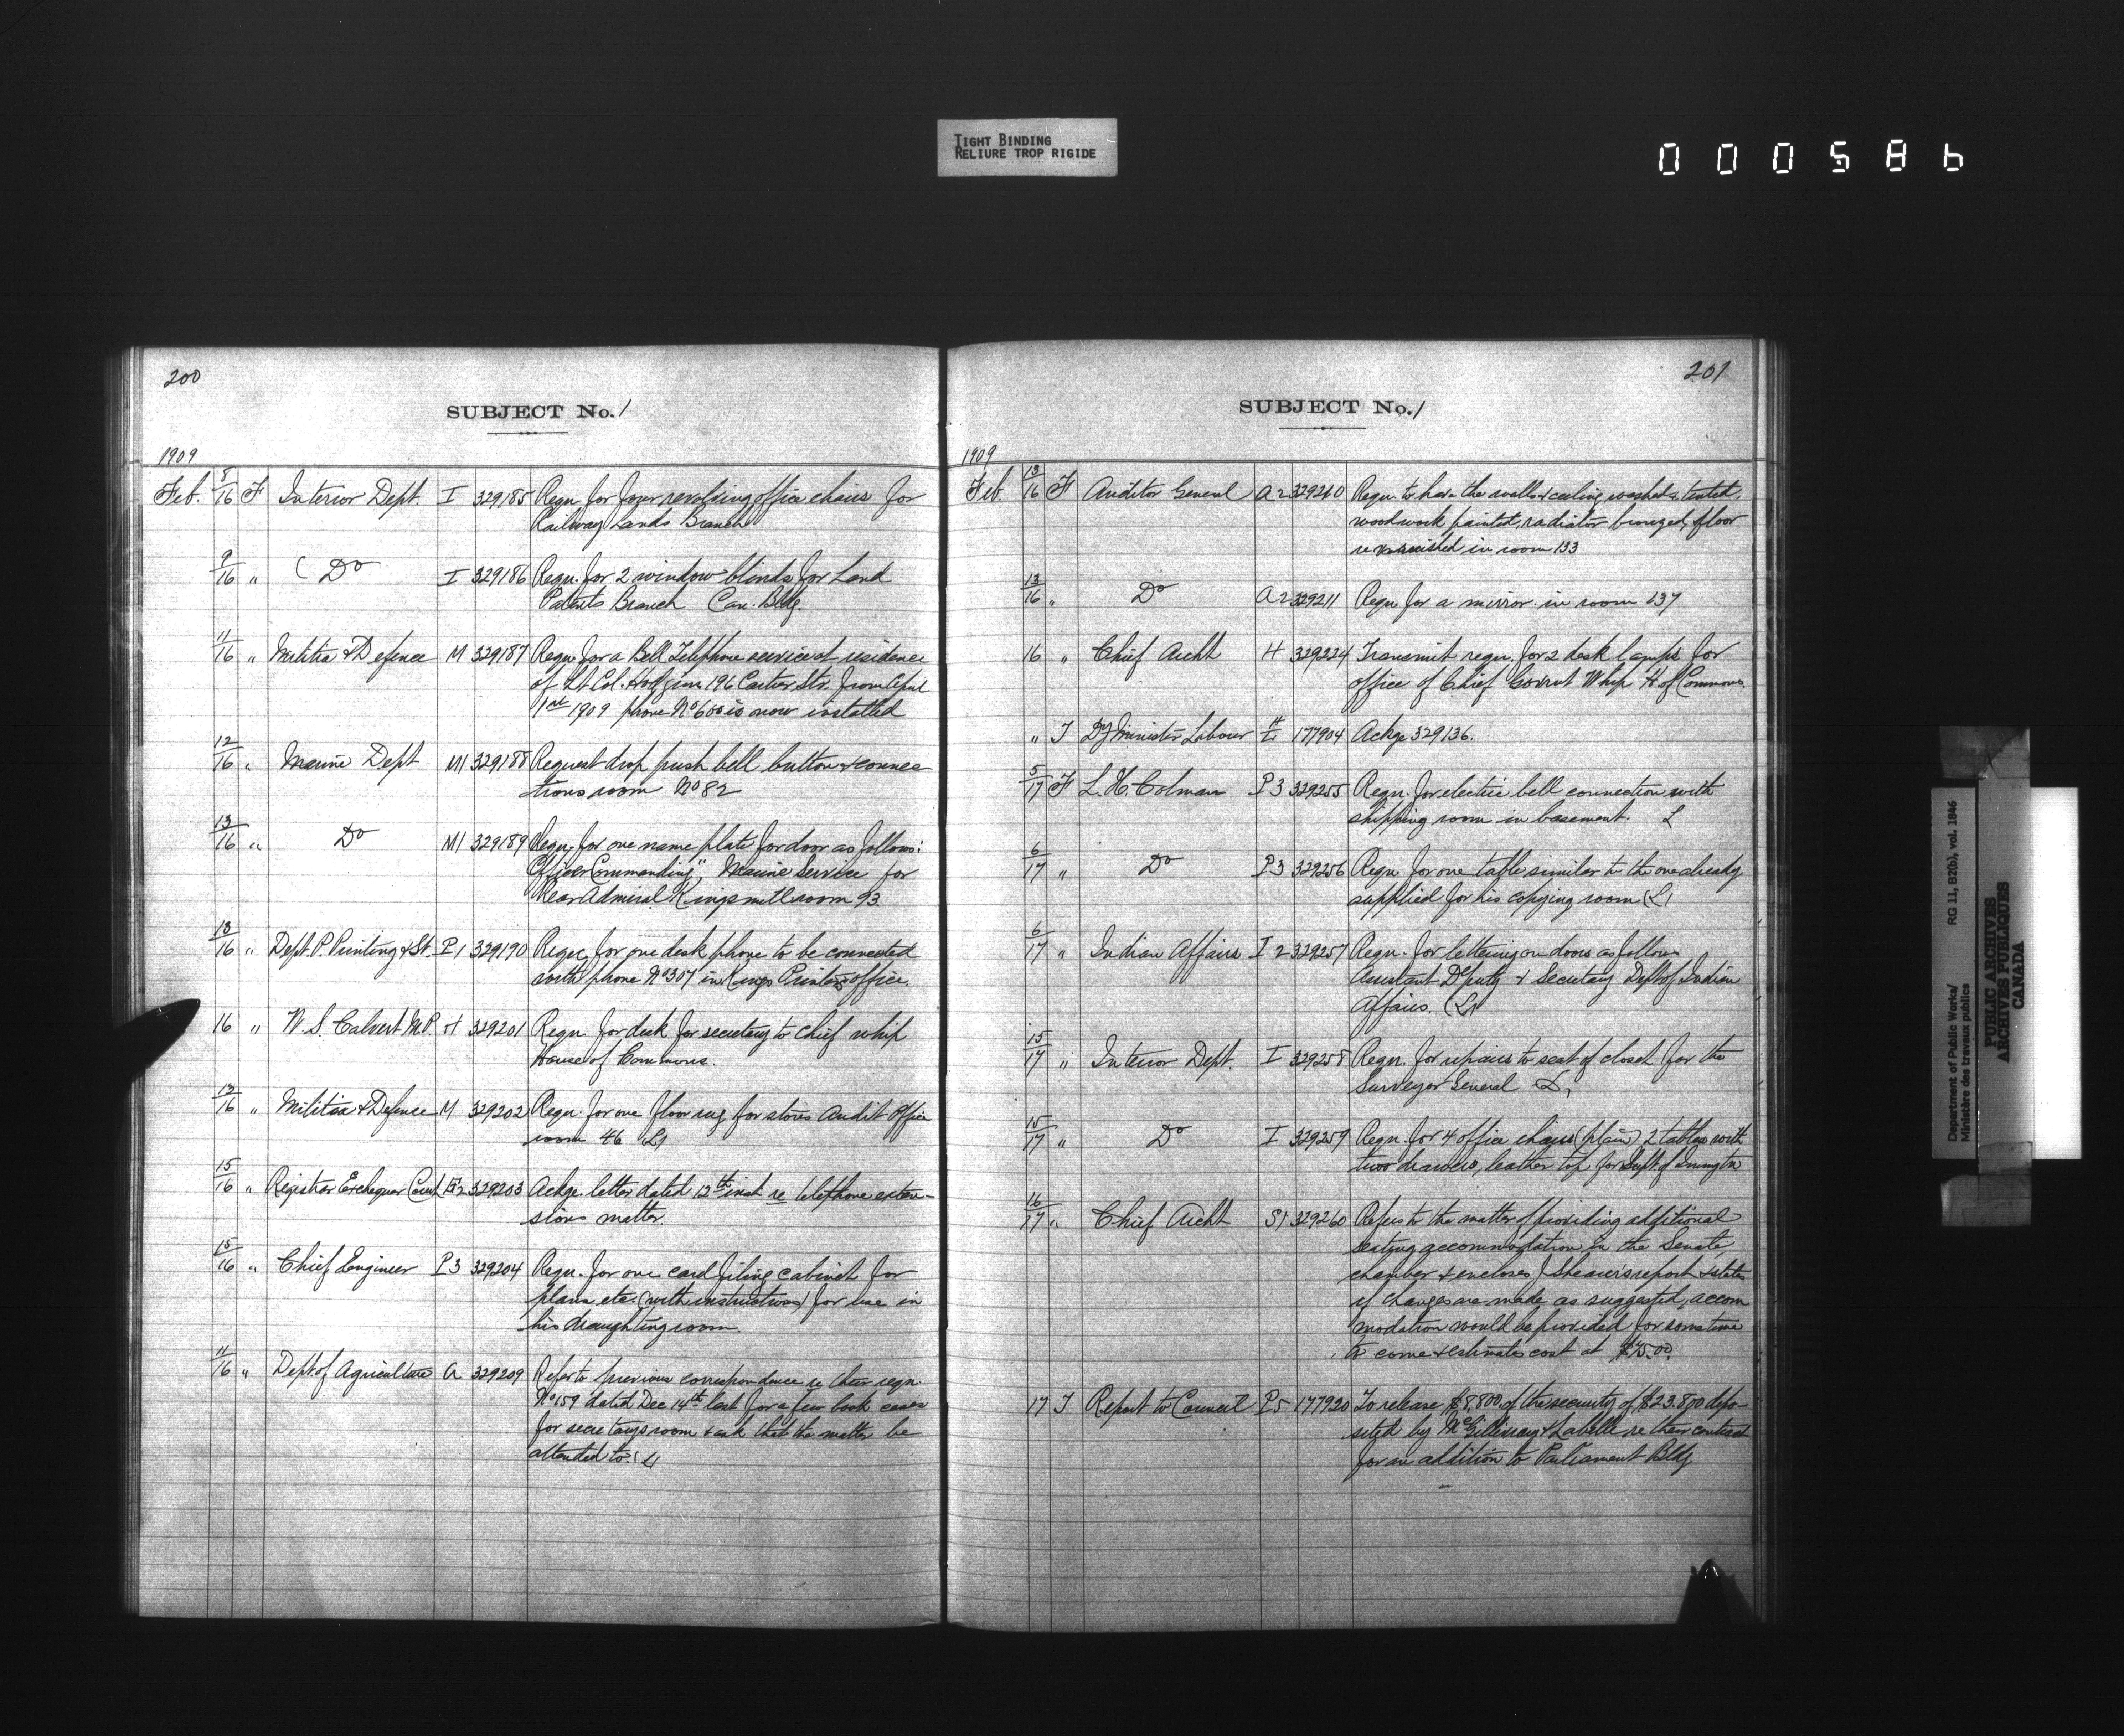 TIGHT BINDING
RELIURE TROP RIGIDE
000586
200
SUBJECT No. 1
1909
Feb. 8/16 F Interior Dept. I 329185 Reqn. for four revolving office chairs for
Railway Lands Branch
9/16 " ( Do I 329186 Reqn. for 2 window blinds for Land
Patents Branch Can. Bldg.
11/16 " Militia & Defence M 329187 Reqn. for a Bell Telephone service at residence
of Lt. Col. 196 Cartier Str. from April
1st 1909 phone No 600 is now installed
12/16 " Marine Dept M1 329188 Request drop push bell button & connec
tions room No 82
13/16 " Do M1 329189 Reqn. for one name plate for door as follows:
"Officer Commanding", Marine Service for
Rear Admiral Kingsmill room 93
13/16 " Dept. P. Printing & St. P1 329190 Reqn. for one desk phone to be connected
with phone No 307 in Kings Printers office.
16 " W. S. Calvert M.P. H 329201 Reqn. for desk for secretary to chief whip
House of Commons.
13/16 " Militia & Defence M 329202 Reqn. for one floor rug for stores Audit Office
room 46 (L)
15/16 " Registrar Exchequer Court E2 329203 Ackge. letter dated 12th inst re telephone exten-
sions matter.
15/16 " Chief Engineer P3 329204 Reqn. for one card filing cabinet for
plans etc. (with instructions) for use in
his draughting room.
11/16 " Dept. of Agriculture A 329209 Refer to previous correspondence re their reqn.
No 159 dated Dec 14th last for a few book cases
for secretarys room & ask that the matter be
attended to (L)
201
SUBJECT No. 1
1909
Feb. 13/16 F Auditor General A2 329210 Reqn. to have the walls & ceiling washed & tinted,
woodwork painted, radiator bronzed, floor
revarnished in room 133
13/16 " Do A2 329211 Reqn. for a mirror in room 137
16 " Chief Archt H 329224 Transmit reqn. for 2 desk lamps for
office of Chief Govrnt Whip H of Commons.
" T Dy Minister Labour L 177904 Ackge 329136.
5/17 F L. H. Colman P3 329255 Reqn. for electric bell connection with
shipping room in basement. L
6/17 " Do P3 329256 Reqn. for one table similar to the one already
supplied for his copying room (L)
6/17 " Indian Affairs I2 329257 Reqn. for lettering on doors as follows
Assistant Deputy & Secretary Dept of Indian
Affairs. (L)
15/17 " Interior Dept. I 329258 Reqn. for repairs to seat of closet for the
Surveyor General
15/17 " Do I 329259 Reqn. for 4 office chairs (plain) 2 tables with
two drawers, leather top for Supt of Immgtn
16/17 " Chief Archt S1 329260 Refers to the matter of providing additional
seating accommodation in the Senate
chamber & encloses J Shearers report & states
if changes are made as suggested, accom
modation would be provided for some time
to come & estimates cost at $75.00.
17 T Report to Council P5 177920 To release $8,800 of the security of $23.800 depo-
sited by McGillivray & Labelle re their contract
for an addition to Parliament Bldg
Department of Public Works/ RG 11, B2(b), vol. 1846
Ministère des travaux publics
PUBLIC ARCHIVES
ARCHIVES PUBLIQUES
CANADA